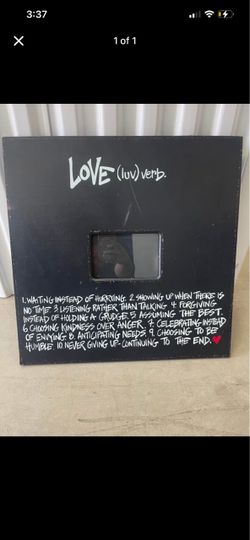 3:37
1 of 1
LOVE (luv) verb.
1. WAITING INSTEAD OF HURRYING 2. SHOWING UP WHEN THERE IS
NO TIME 3. LISTENING RATHER THAN TALKING 4. FORGIVING
INSTEAD OF HOLDING A GRUDGE 5. ASSUMING THE BEST.
6. CHOOSING KINDNESS OVER ANGER. 7. CELEBRATING INSTEAD
OF ENVYING 8. ANTICIPATING NEEDS. 9. CHOOSING TO BE
HUMBLE. 10. NEVER GIVING UP- CONTINUING TO THE END.